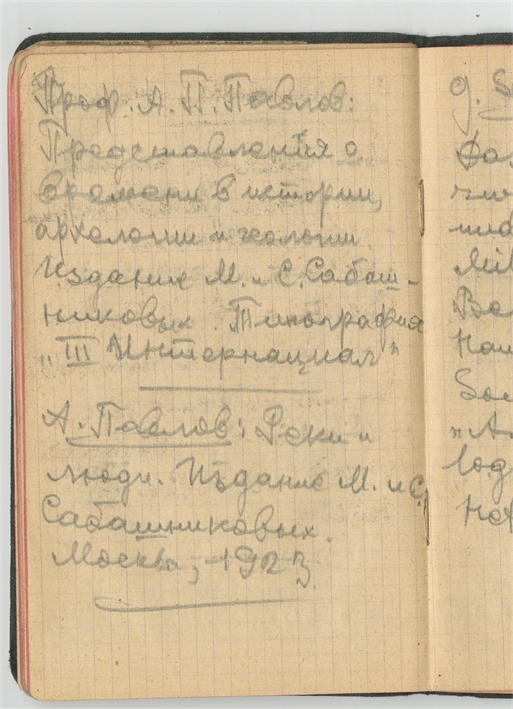 Проф. А. П. Павлов:
Представления о
времени в истории,
археологии и геологии
Издание М. и С. Сабаш-
никовых. Типография
„III Интернационал"
А. Павлов: Реки и
люди. Издание М. и С.
Сабашниковых.
Москва, 1923
g.